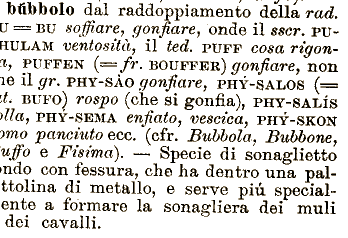 búbbolo dal raddoppiamento della rad.
U = BU soffiare, gonfiare, onde il sscr. PU-
HULAM ventosità, il ted. PUFF cosa rigon-
a, PUFFEN (= fr. BOUFFER) gonfiare, non
he il gr. PHY-SÀO gonfiare, PHÝ-SALOS (=
at. BUFO) rospo (che si gonfia), PHY-SALÌS
olla, PHY-SEMA enfiato, vescica, PHÝ-SKON
omo panciuto ecc. (cfr. Bubbola, Bubbone,
uffo e Fisima). — Specie di sonaglietto
ondo con fessura, che ha dentro una pal-
ttolina di metallo, e serve piú special-
ente a formare la sonagliera dei muli
dei cavalli.